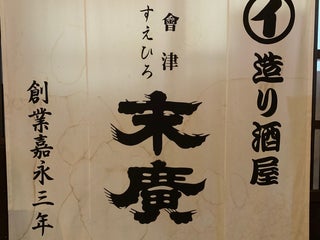 イ造り酒屋
會津
すえひろ
末廣
創業嘉永三年